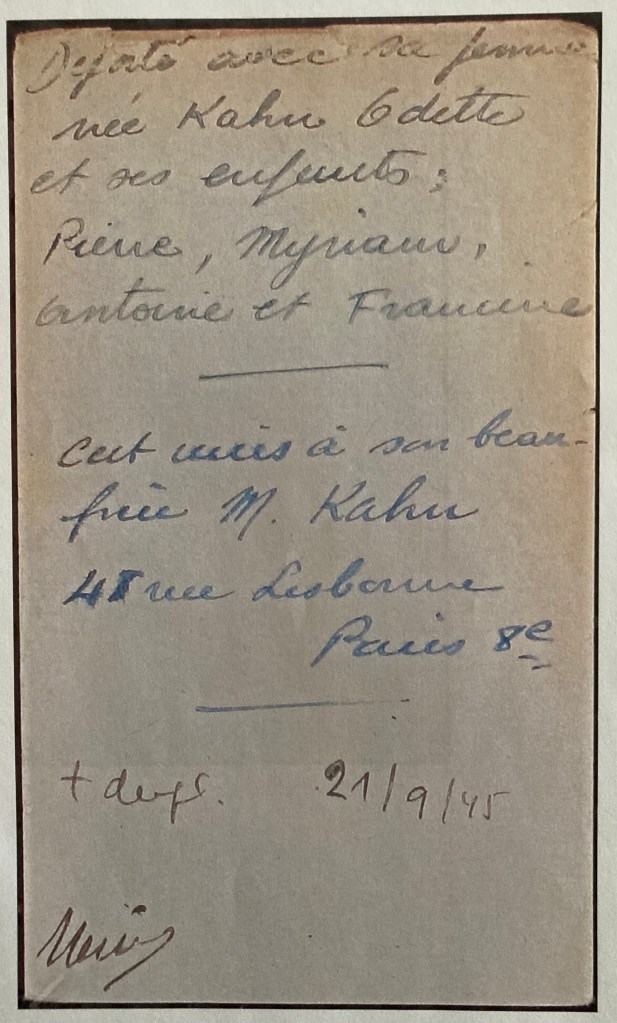 Déporté avec sa femme
née Kahn Odette
et ses enfants :
Pierre, Myriam,
Antoine et Francine
à son beau-
frère M. Kahn
rue Lisbonne
Paris 8e
21/9/45